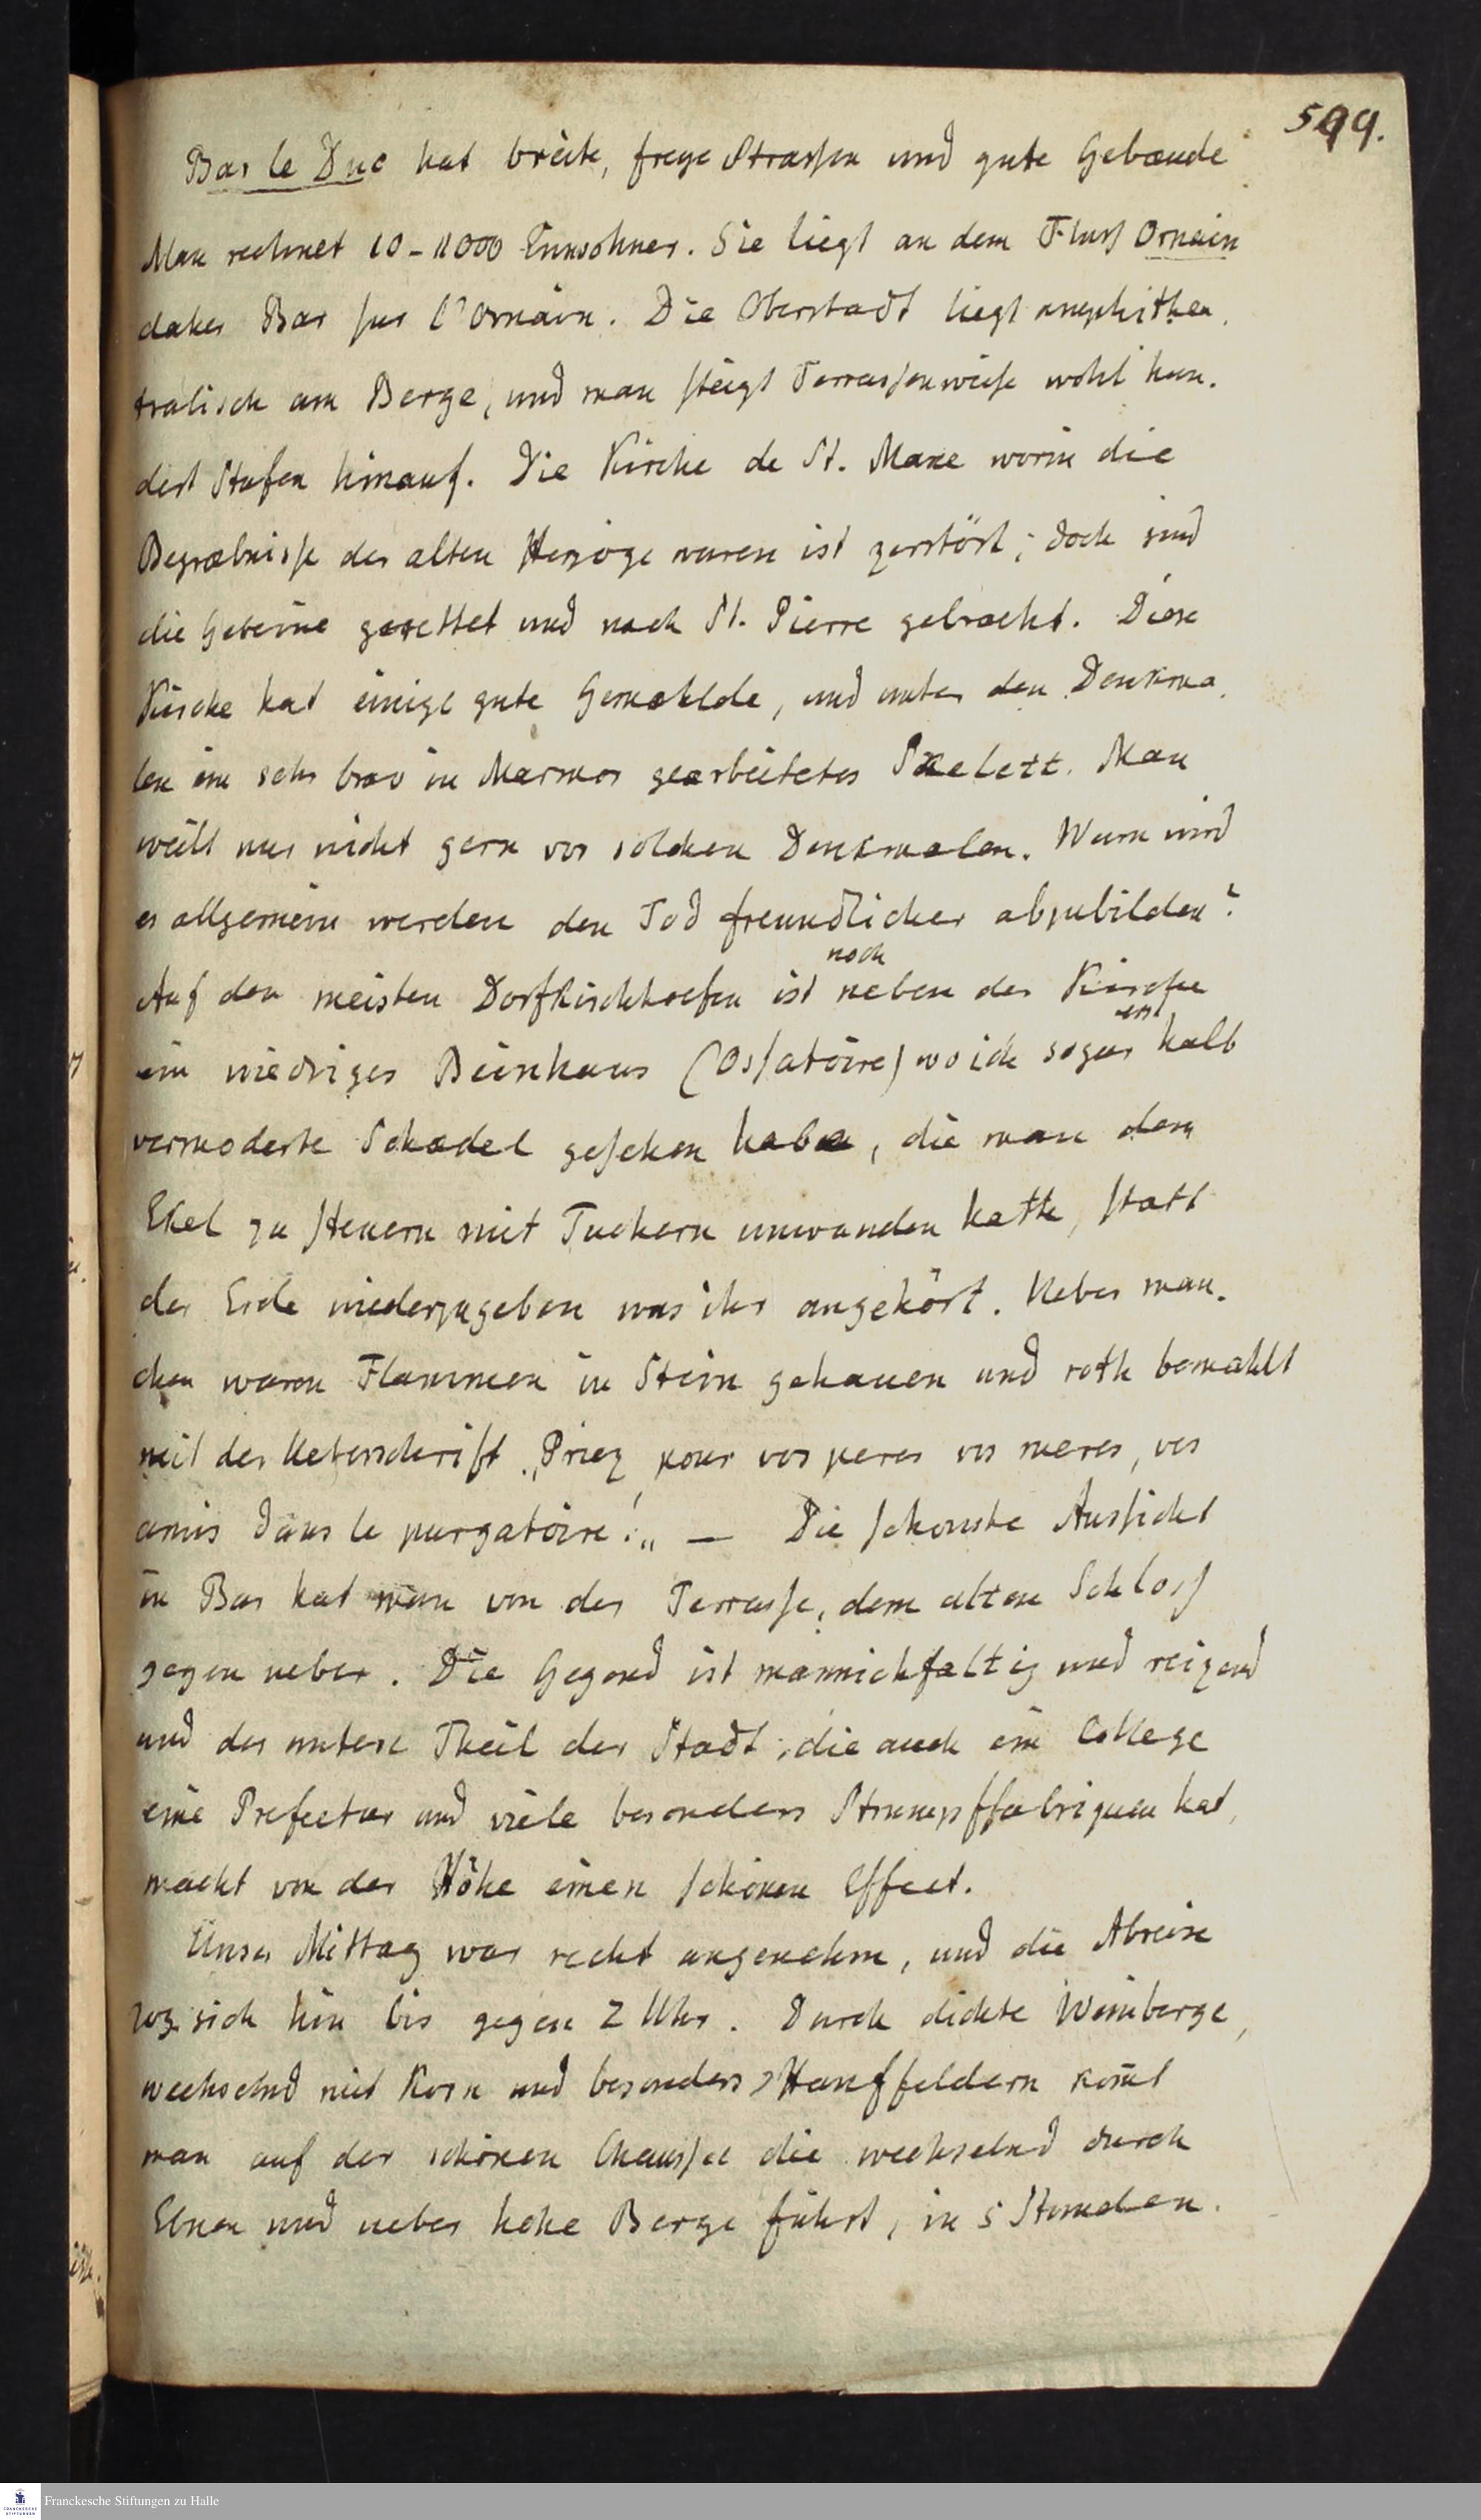 599.
Bar le Duc hat breite, freye Strassen und gute Gebæude
Man rechnet 10-11000 Einwohner. Sie liegt an dem Fluss Ornain
daher Bar sur l'Ornain. Die Oberstadt liegt amphithea,
tralisch am Berge, und man steigt Terrassenweise wohl hun-
dert Stufen hinauf. Die Kirche de St. Maxe worin die
Begræbnisse der alten Herzöge waren ist zerstört; doch sind
die Gebeine gerettet und nach St. Pierre gebracht. Diese
Kirche hat einige gute Gemæhlde, und unter den Denkma,
len ein sehr brav in Marmor gearbeitetes Skelett. Man
weilt nur nicht gern vor solchen Denkmalen. Wann wird
es allgemein werden den Tod freundlicher abzubilden?
Auf den meisten Dorfkirchhoefen ist noch neben der Kirche
ein niedriges Beinhaus (Ossatoire) wo ich sogar erst halb
vermoderte Schædel gesehen habe, die man dem
Ekel zu steuern mit Tuchern umwunden hatte, statt
der Erde niederzugeben was ihr angehört. Ueber man-
chen waren Flammen in Stein gehauen und roth bemahlt
mit der Ueberschrift „Priez pour vos peres vos meres, vos
amis dans le purgatoire!„ — Die schonste Aussicht
in Bar hat man von der Terrasse, dem alten Schloss
gegen ueber. Die Gegend ist mannichfaltig und reizend
und der untere Theil der Stadt, die auch ein College
eine Prefectur und viele besonders Strumpffabriquen hat,
macht von der Höhe einen schönen Effect.
Unser Mittag war recht angenehm, und die Abreise
zog sich hin bis gegen 2 Uhr. Durch dichte Weinberge,
wechselnd mit Korn und besonders Hanffeldern komt
man auf der schönen Chaussee die wechselnd durch
Ebnen und ueber hohe Berge führt, in 5 Stunden.
Franckesche Stiftungen zu Halle